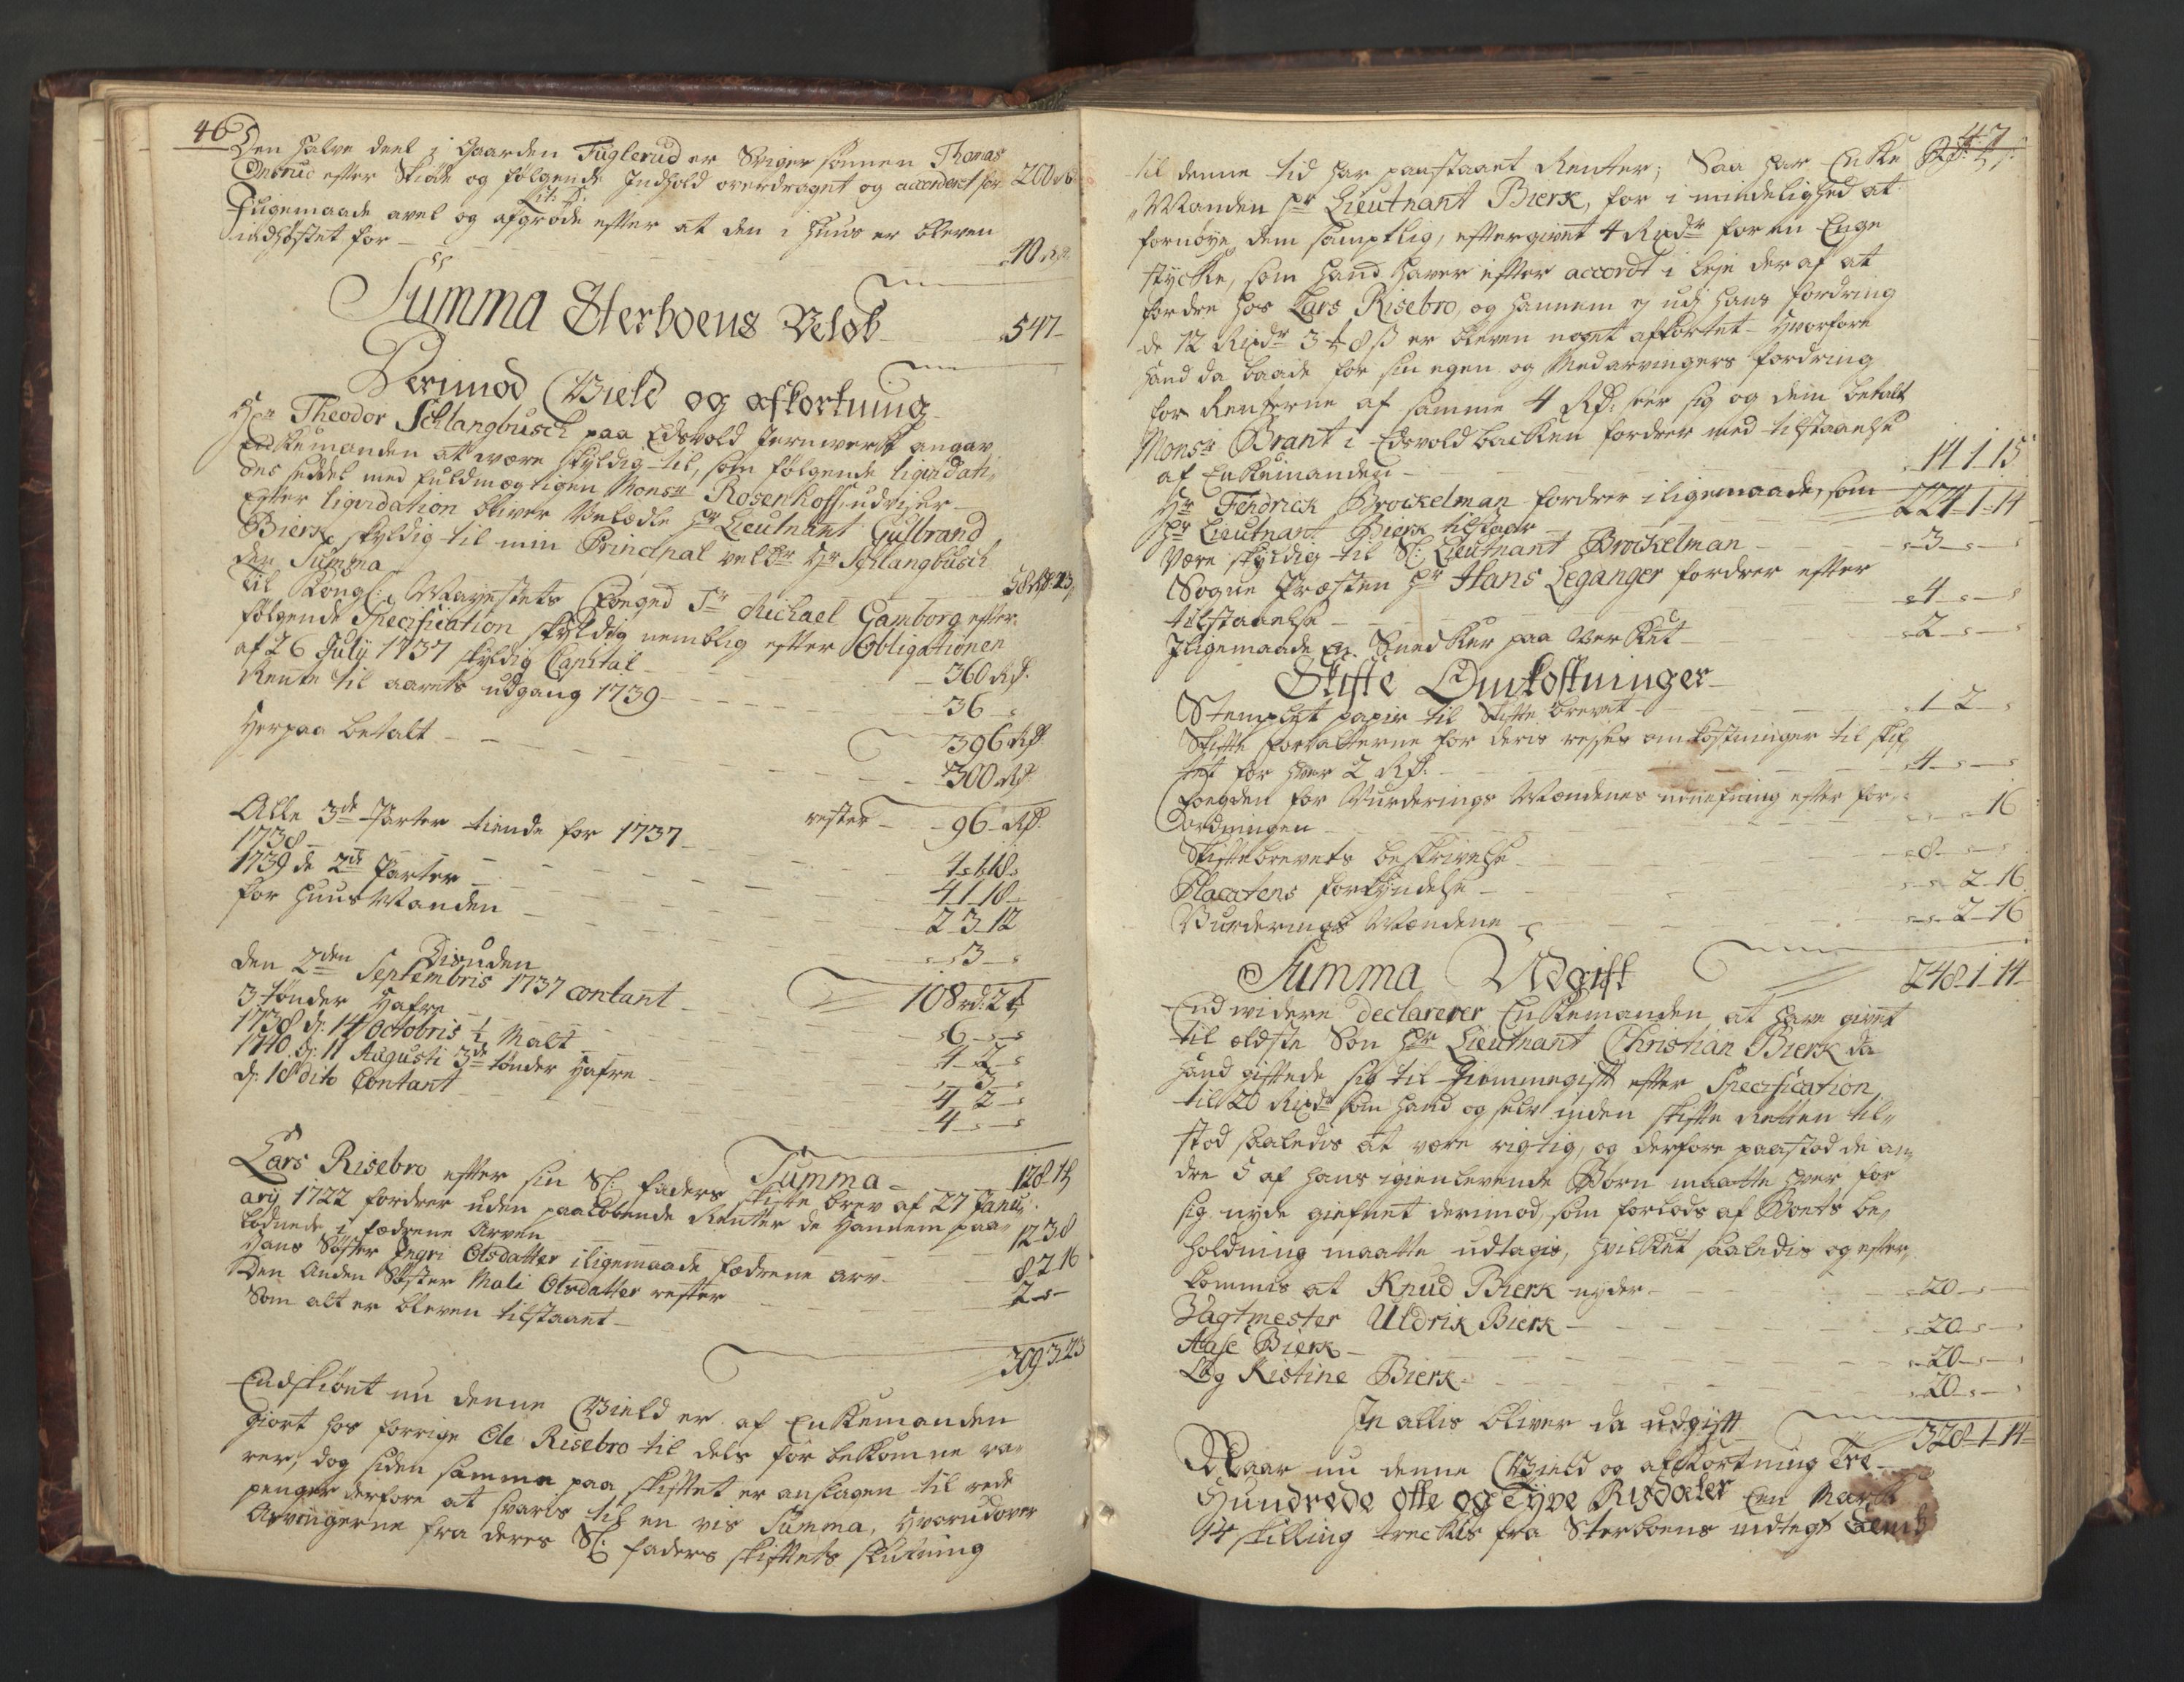 46
Den halve deel i Gaarden Fuglerud er Sviger sønnen Thomas
Ombrud efter Skiøde og følgende Indhold overdraget og accorderet for 200 rd
Lit: D:
Ligemaade avel og afgrøde efter at den i huus er bleven
indhøstet for - 40 rd
Summa Sterboens Beløb - 547 -
Derimod Gield og afkortning
Hr Theodor Schlangbusch paa Edsvold Jernverk angav
Enkemanden at være skyldig til, som følgende liqvidati-
ons seddel med fuldmægtigen Monsr Rosenhoff udviser -
Efter liqvidation bliver Velædle Hr Lieutnant Gulbrand
Bierk skyldig til min Principal velbr Hr Schlangbusch
den Summa -
Til Kongl: Mayestets Foeged Sr Michael Gamborg efter
følgende Specification skyldig nemblig efter Obligationen
af 26 July 1737 skyldig Capital - 360 Rd.
Rente til aarets udgang 1739 - 36 -
396 Rd.
Herpaa betalt - 300 Rd.
rester - 96 Rd.
Alle 3de Parter tiende for 1737 - 4-1-18
1738 - 4-1-18
1739 de 2de Parter - 2-3-12
for huusManden - 3 -
108 rd: 2
Disuden
den 2den Septembris 1737 contant - 6 -
3 tønder Hafre - 4-2 -
1738 d: 14 Octobris ½ t Malt - 3 -
1740 d: 11 Augusti 3de tønder Hafre - 4-2 -
d: 18 dito Contant - 4 -
Summa - 128-1
Lars Risebro efter sin Sl: faders skifte brev af 27 Janu-
arij 1722 fordrer uden paaløbende Renter de Hannem paa-
lodnede i fædrene Arven - 12-3-8
Hans Søster Ingri Olsdatter iligemaade fædrene arv - 8-2-16
Den Anden Søster Mali Olsdatter rester - 2 -
Som alt er bleven tilstaaet -
Endskiønt nu denne Gield er af Enkemanden
giort hos forrige Ole Risebro til dels for bekomne va-
rer, dog siden samme paa skiftet er anslagen til rede
penger derfore at svares til en vis Summa, Hvorudover
Arvingerne fra deres Sl: faders skiftets slutning
47
til denne tid har paastaaet Renter; Saa har Enke
Manden Hr Lieutnant Bierk, for i mindelighed at
fornøye dem samptlig, eftergivet 4 Rixdr for en Enge
stycke, som hand haver efter accordt i leje der af at
fordre hos Lars Risebro, og hannem ej udj hans fordring
de 12 Rixdr 3 8 ß er bleven noget afkortet - Hvorfore
hand da baade for sin egen og Medarvingers fordring
for Renterne af samme 4 Rd. seer sig og dem betalt
Monsr Brant i Edsvoldbacken fordrer med tilstaaelse
af Enkemanden - 14-1-15
224-1-14
Hr Fendrick Brockelman fordrer iligemaade, som
Hr Lieutnant Bierk tilstaar
Være skyldig til Sl: Lieutnant Brockelman - 3 -
Sogne Præsten Hr Hans Leganger fordrer efter
tilstaaelse - 4 -
Iligemaade en Snedker paa Verket - 2 -
Skifte Omkostninger
Stemplet papir til skifte brevet - 1-2 -
Skifte forvalterne for deris rejses omkostninger til skif-
tet for hver 2 Rd. - 4 -
Foegden for Vurderings Mændenes udnefning efter for-
ordningen - 16
Skiftebrevets beskrivelse - 8 -
Placatens forkyndelse - 2-16
Vurderings Mændene - 2-16
Summa Udgift 248-1-14
End videre declarerer Enkemanden at have givet
til ældste Son Hr Lieutnant Christian Bierk da
hand giftede sig til Hiemmegift efter Specification
til 20 Rixdr som hand og selv inden skifte Retten til-
stod saaledis at være rigtig, og derfore paastod de an-
dre 5 af hans igienlevende Børn maatte hver for
sig nyde giefnet derimod, som forlods af Boets be-
holdning maatte udtages, hvilket saaledis og efter-
kommis at Knud Bierk nyder - 20 -
Vagtmester Uldrik Bierk - 20 -
Aase Bierk - 20 -
Og Kistine Bierk - 20 -
In allis bliver da udgift 328-1-14
Naar nu denne Gield og afkortning Tre-
Hundrede otte og Tyve Rixdaler Een Mark
14 skilling trækkes fra Sterboens indtegt